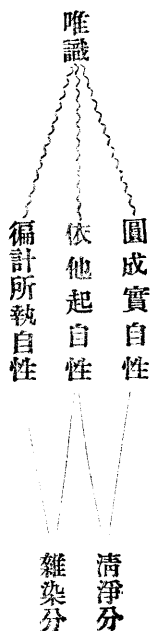 唯識
圓成實自性
依他起自性
徧計所執自性
清淨分
雜染分